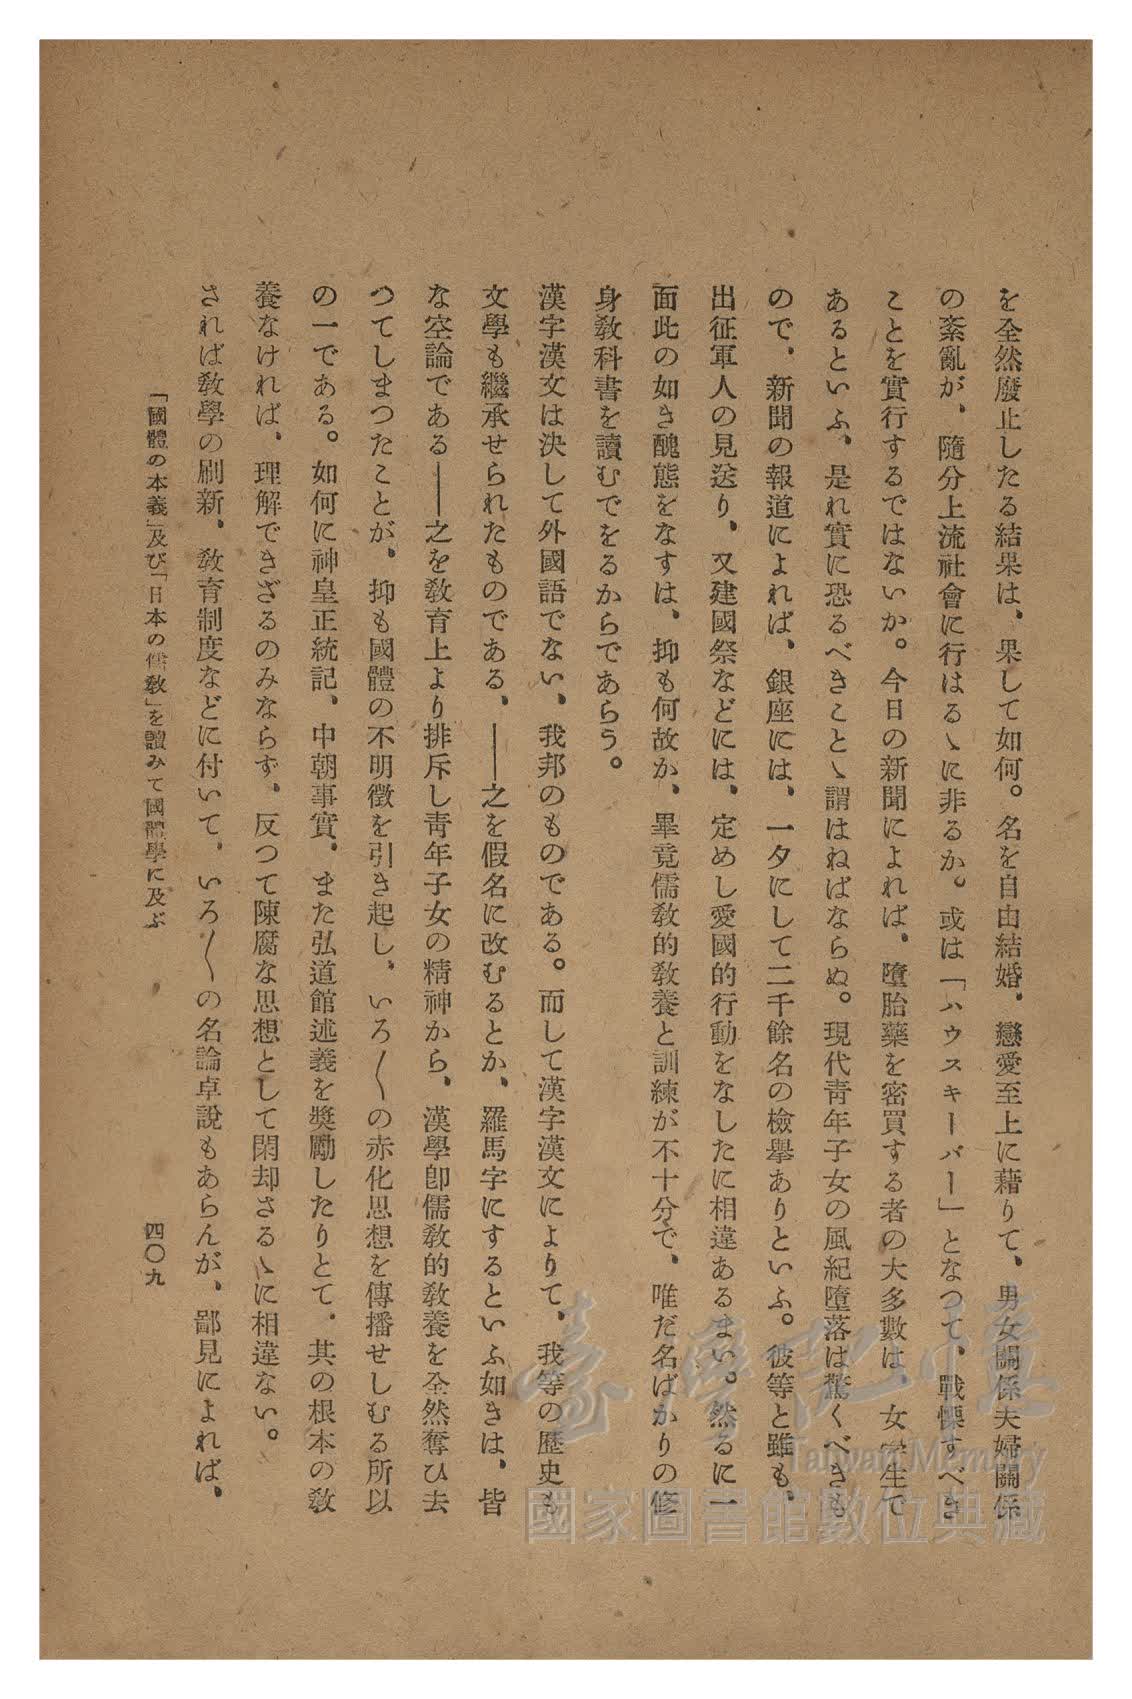 を全然廢止したる結果は、果して如何。名を自由結婚、戀愛至上に藉りて、男女關係夫婦關係
の紊亂が、隨分上流社會に行はるゝに非るか。或は「ハウスキーバー」となつて、戰慄すべき
ことを實行するではないか。今日の新聞によれば、墮胎藥を密買する者の大多數は、女學生で
あるといふ、是れ實に恐るべきことゝ謂はねばならぬ。現代靑年子女の風紀墮落は驚くべきも
ので、新聞の報道によれば、銀座には、一夕にして二千餘名の檢擧ありといふ。彼等と雖も、
出征軍人の見送り、又建國祭などには、定めし愛國的行動をなしたに相違あるまい。然るに一
面此の如き醜態をなすは、抑も何故か、畢竟儒敎的敎養と訓練が不十分で、唯だ名ばかりの修
身敎科書を讀むでをるからであらう。
漢字漢文は決して外國語でない、我邦のものである。而して漢字漢文によりて、我等の歷史も
文學も繼承せられたものである、――之を假名に改むるとか、羅馬字にするといふ如きは、皆
な空論である――之を敎育上より排斥し靑年子女の精神から、漢學卽儒敎的敎養を全然奪ひ去
つてしまつたことが、抑も國體の不明徵を引き起し、いろ〱の赤化思想を傳播せしむる所以
の一である。如何に神皇正統記、中朝事實、また弘道館述義を奬勵したりとて、其の根本の敎
養なければ、理解できざるのみならず、反つて陳腐な思想として閑却さるゝに相違ない。
されば敎學の刷新、敎育制度などに付いて、いろ〱の名論卓說もあらんが、鄙見によれば、
「國體の本義」及び「日本の儒敎」を讀みて國體學に及ぶ
四〇九
臺灣記憶
Taiwan Memory
國家圖書館數位典藏